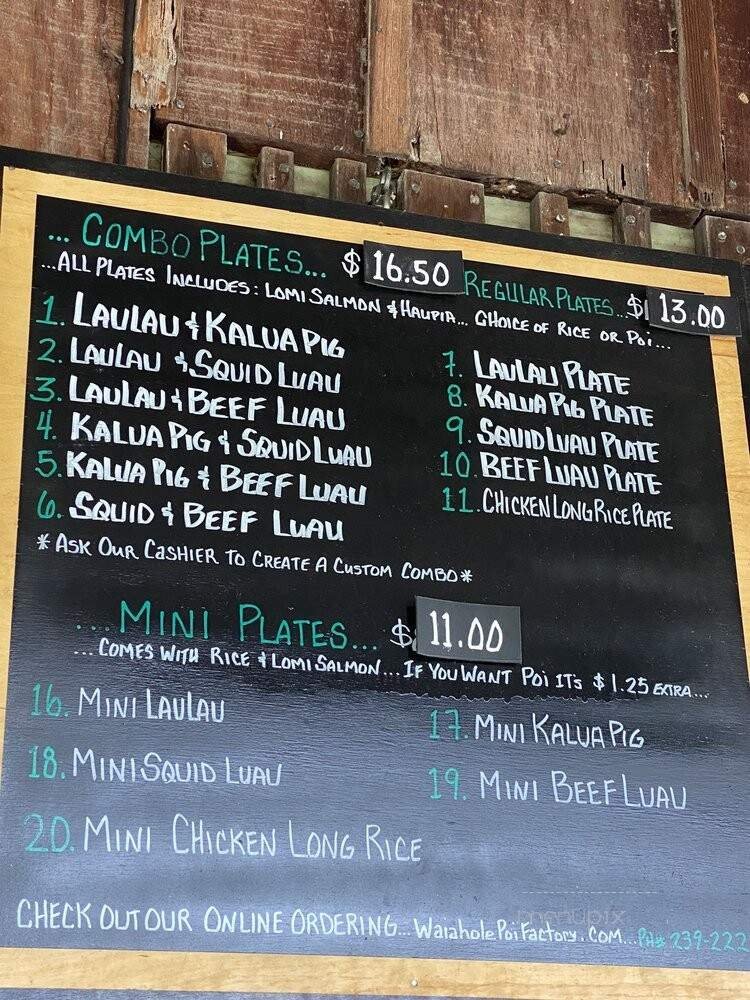 ... COMBO PLATES... $ 16.50
REGULAR PLATES... $ 13.00
...ALL PLATES INCLUDES: LOMI SALMON & HAUPIA... CHOICE OF RICE OR POI...
1. LAULAU & KALUA PIG
2. LAULAU & SQUID LUAU
3. LAULAU & BEEF LUAU
4. KALUA PIG & SQUID LUAU
5. KALUA PIG & BEEF LUAU
6. SQUID & BEEF LUAU
7. LAULAU PLATE
8. KALUA PIG PLATE
9. SQUID LUAU PLATE
10. BEEF LUAU PLATE
11. CHICKEN LONG RICE PLATE
*ASK OUR CASHIER TO CREATE A CUSTOM COMBO*
... MINI PLATES... $ 11.00
... COMES WITH RICE & LOMI SALMON... IF YOU WANT POI ITS $1.25 EXTRA...
16. MINI LAULAU
17. MINI KALUA PIG
18. MINI SQUID LUAU
19. MINI BEEF LUAU
20. MINI CHICKEN LONG RICE
CHECK OUT OUR ONLINE ORDERING... WaiaholePoiFactory.COM... PH# 239-222
menupix